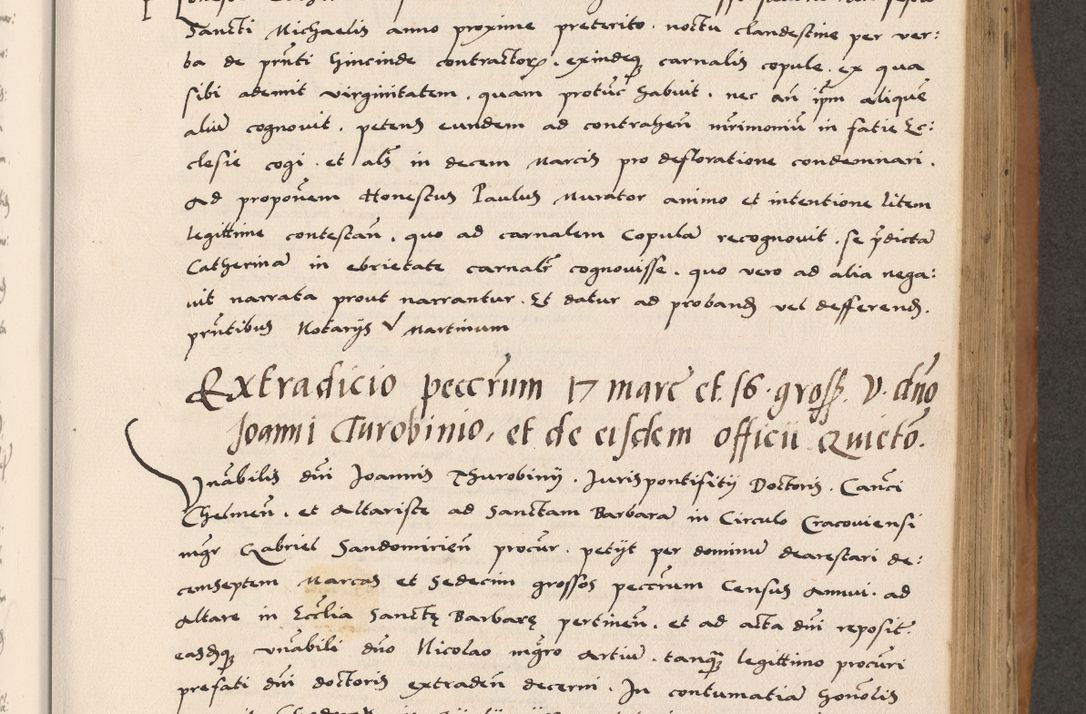 Sancti Michaelis anno proxime preterito . noctu clandestine per ver:
ba de pñti hincinde contractoꝝ . exindeqꝫ carnalis copule . ex qua
sibi ademit virginitatem . quam protũc habuit . nec añ ipm̃ aliquẽ
aliũ cognovit . petens eundem ad contraheñ mr̃imoniũ in fatie Ec:
clesie cogi . et als̃ in decem Marcis pro defloratione condemnari .
Ad proponẽm Honestus Paulus Murator animo et intentione litem
legittime contestañ . quo ad carnalem Copulã recognovit . se p̃dictã
Catherinã in ebrietate carnalr̃ cognovisse . quo vero ad alia nega:
vit narrata prout narrantur . Et datur ad probands vel defferends .
pñtibus Notarys V Martinum
Extradicio peccr̃um 17 marc̃ et .16. gross. V. dño
Joanni Turobinio, et de eisdem officii Quietõ.
Vnãbilis dñi Joannis Thurobiny . Juris pontifity Doctoris . Canci
Chelmeñ . et Altariste ad Sanctam Barbarã in Circulo Cracoviensi
mg̃r Gabriel Sandomirieñ procur̃ . petyt per dominũ dearestari de:
cemseptem Marcas et Sedecim grossos peccr̃um Census Annui . ad
Altare in Eccl̃ia Sanctę Barbarę pertineñ . et ad acta dñi reposit:
easdqꝫ vnãbili dño Nicolao mg̃ro Artiũ . tanqꝫ legittimo procur̃i
prefati dñi doctoris extradeñ decerni . In contumatiã honor̃lis